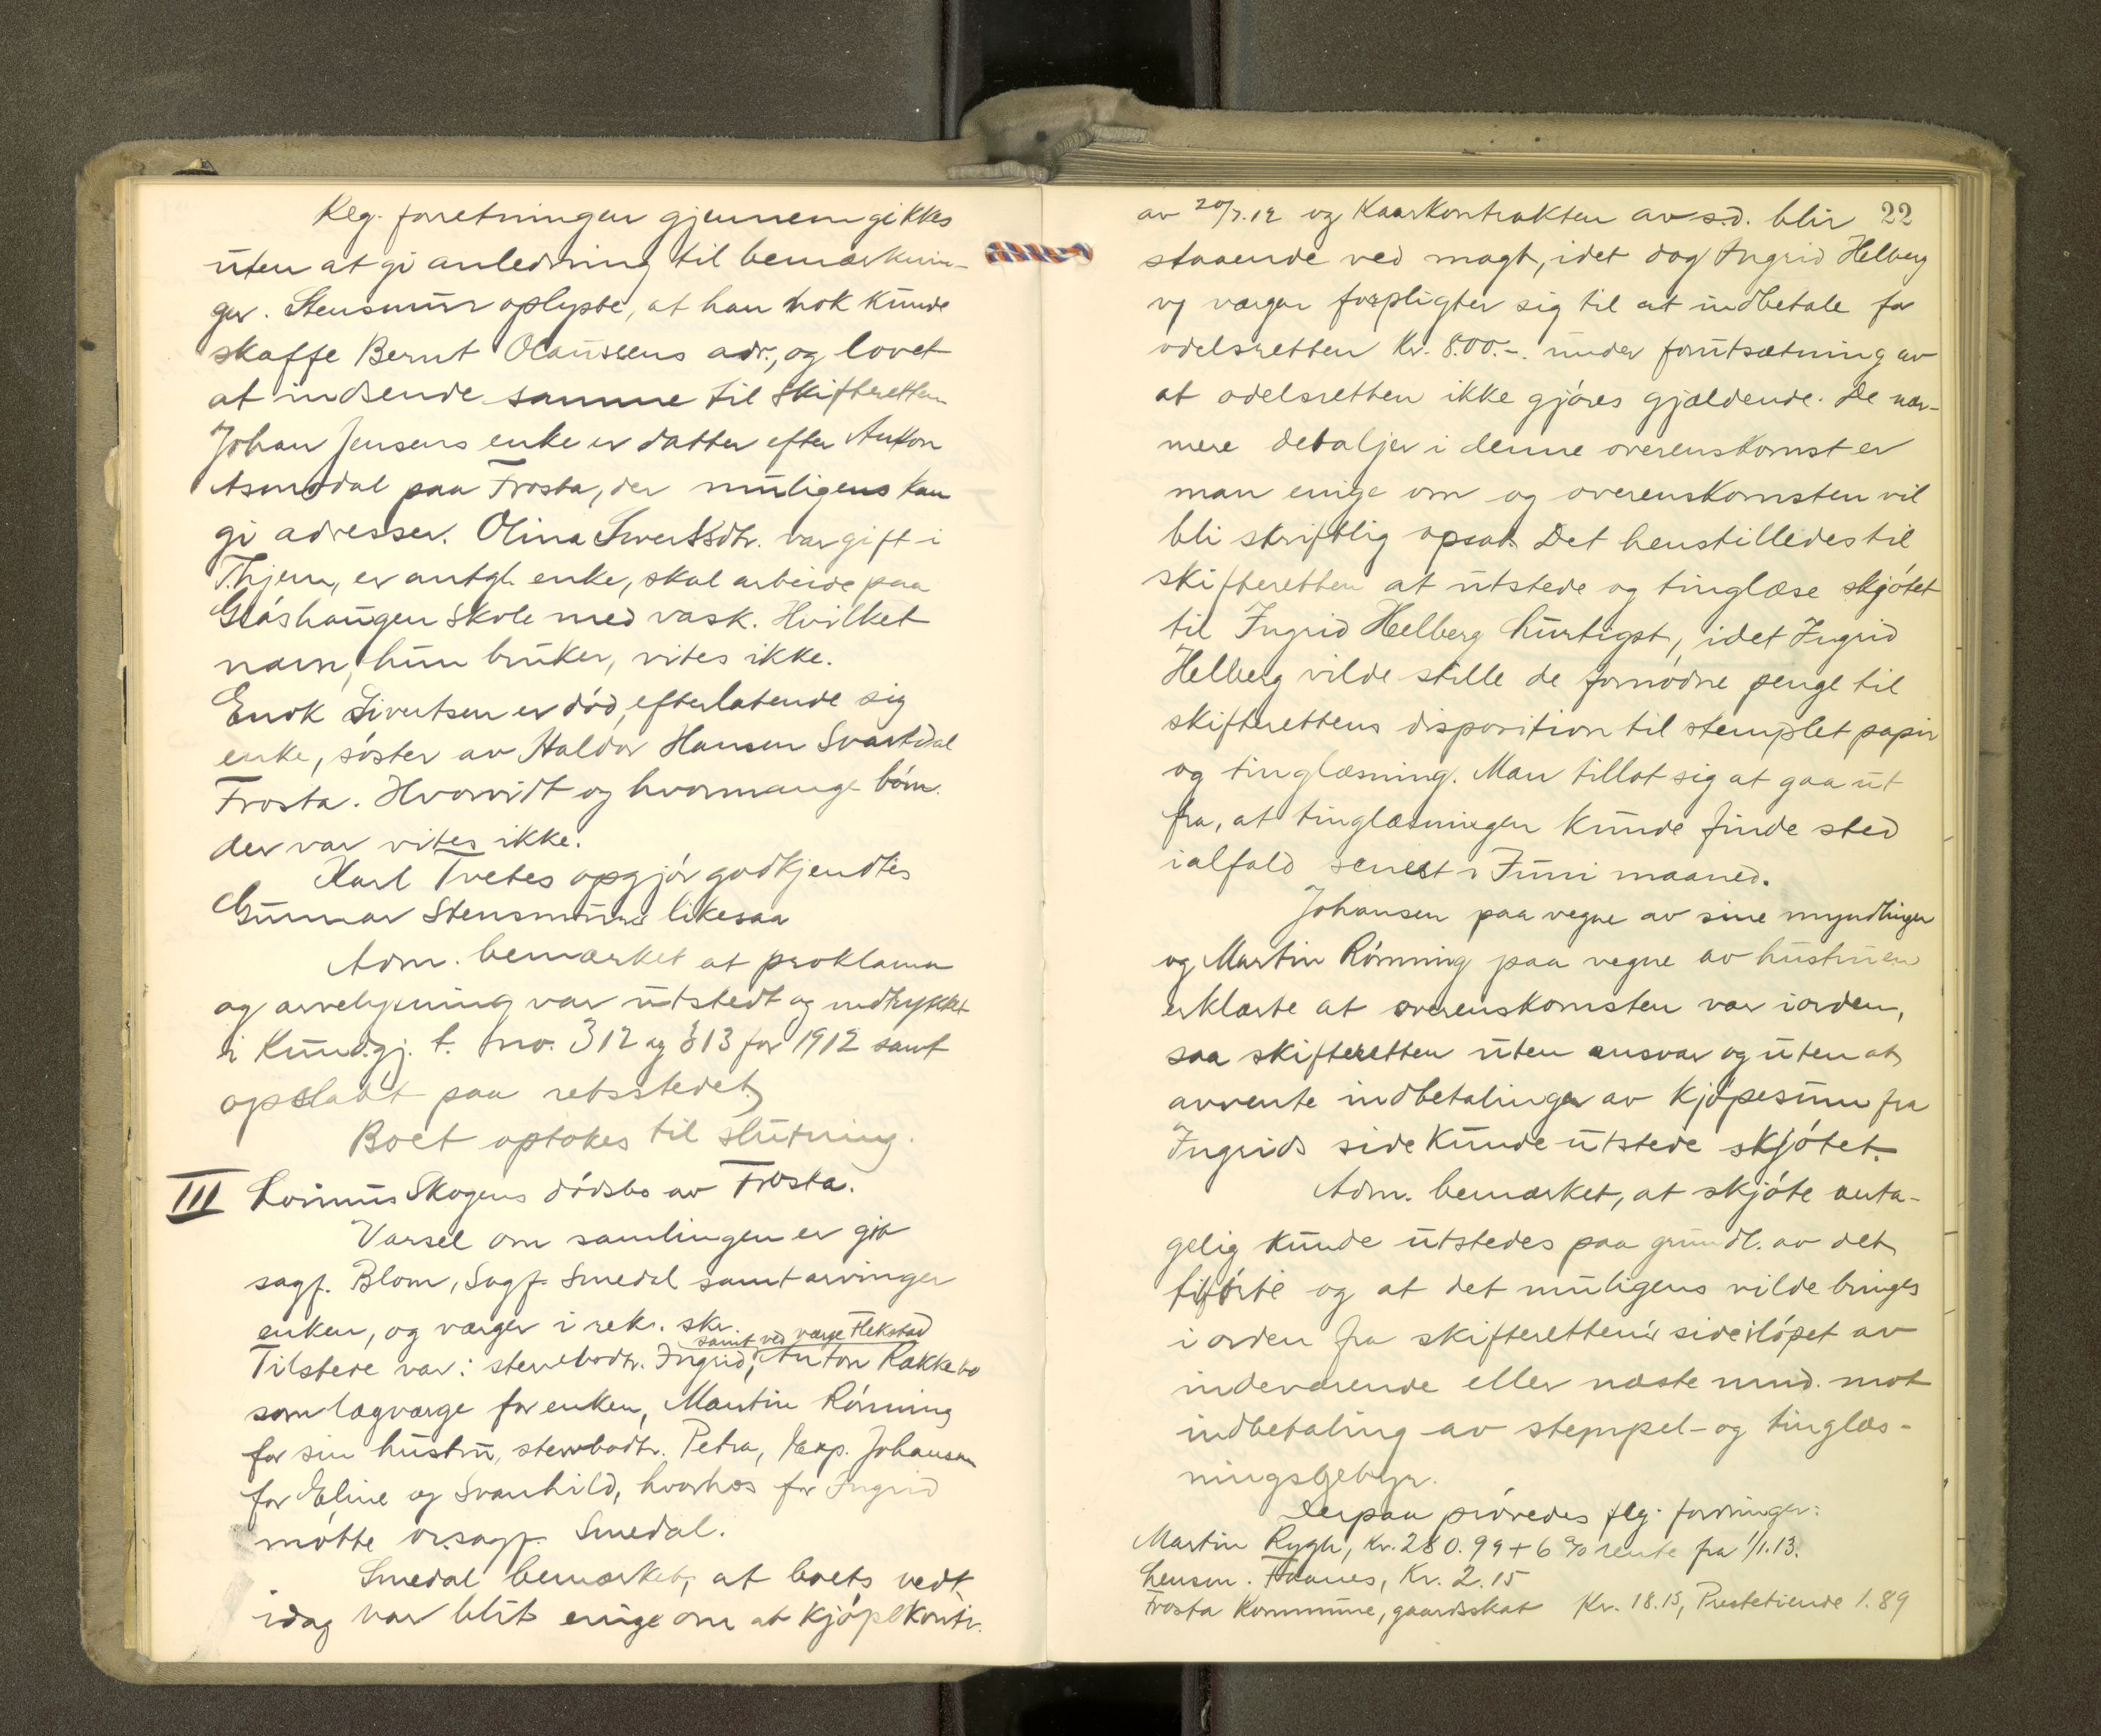 Reg. forretningen gjennemgikkes
uten at gi anledning til bemærknin-
ger. Stensmur oplyste, at han nok kunde
skaffe Bernt Olaussens adr., og lovet
at indsende samme til Skifteretten
Johan Jensens enke er datter efter Anton
Asmodal paa Frosta, der muligens kan
gi adresser. Olina Sivertsdtr. var gift i
Thjem, er antgl. enke, skal arbeide paa
Gråshaugen Skole med vask. Hvilket
navn, hun bruker, vites ikke.
Enok Sivertsen er død, efterlatende sig
enke, søster av Haldor Hansen Svartdal
Frosta. Hvorvidt og hvormange børn
der var vites ikke.
Karl Tvetes opgjør godkjendtes
Gunnar Stensmurs likesaa
Adm. bemærket at proklama
og arvelysning var utstedt og indrykket
i Kundgj. t. no. 312 og 313 for 1912 samt
opslaat paa retsstedet.
Boet optokes til slutning.
III Lorinus Skogens dødsbo av Frosta.
Varsel om samlingen er git
sagf. Blom, Sagf. Smedal samt arvinger
enken, og værger i rek. skr.
samt ved værge Flekstad
Tilstede var: stervbodtr. Ingrid, Anton Rækkebo
som lagværge for enken, Martin Rønning
for sin hustru, stervbodtr. Petra, Exp. Johansen
for Eline og Svanhild, hvorhos for Ingrid
møtte o.r.sagf. Smedal.
Smedal bemærket, at boets vedk.
idag var blit enige om at kjøpekontr.
22
av 20/7.12 og Kaarkontrakten av s.d. blir
staaende ved magt, idet dog Ingrid Helberg
og værger forpligter sig til at indbetale for
odelsretten Kr. 800.-. under forutsætning av
at odelsretten ikke gjøres gjældende. De nær-
mere detaljer i denne overenskomst er
man enige om og overenskomsten vil
bli skriftlig opsat. Det henstilledes til
skifteretten at utstede og tinglæse skjøtet
til Ingrid Helberg hurtigst, idet Ingrid
Helberg vilde stille de fornødne penge til
skifterettens disposition til stemplet papir
og tinglæsning. Man tillot sig at gaa ut
fra, at tinglæsningen kunde finde sted
ialfald senest i Juni maaned.
Johansen paa vegne av sine myndlinger
og Martin Rønning paa vegne av hustruen
erklærte at overenskomsten var iorden,
saa skifteretten uten ansvar og uten at
avvente indbetalinger av kjøpesum fra
Ingrids side kunde utstede skjøtet.
Adm. bemærket, at skjøte anta-
gelig kunde utstedes paa grundl. av det
tilførte og at det muligens vilde bringes
i orden fra skifterettens side i løpet av
indeværende eller næste mnd. mot
indbetaling av stempel- og tinglæs-
ningsgebyr.
Derpaa prøvedes flg. fordringer:
Martin Rygh, Kr. 280.99 + 6 % rente fra 1/1.13.
Lensm. Faanes, Kr. 2.15
Frosta Kommune, gaardsskat Kr. 18.13, Prestetiende 1.89